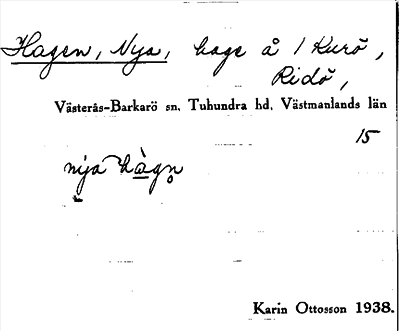 Hagen, Nya, hage å / Kurö,
Ridö,
Västerås-Barkarö sn. Tuhundra hd. Västmanlands län
15
nya hàgn̥
Karin Ottosson 1938.